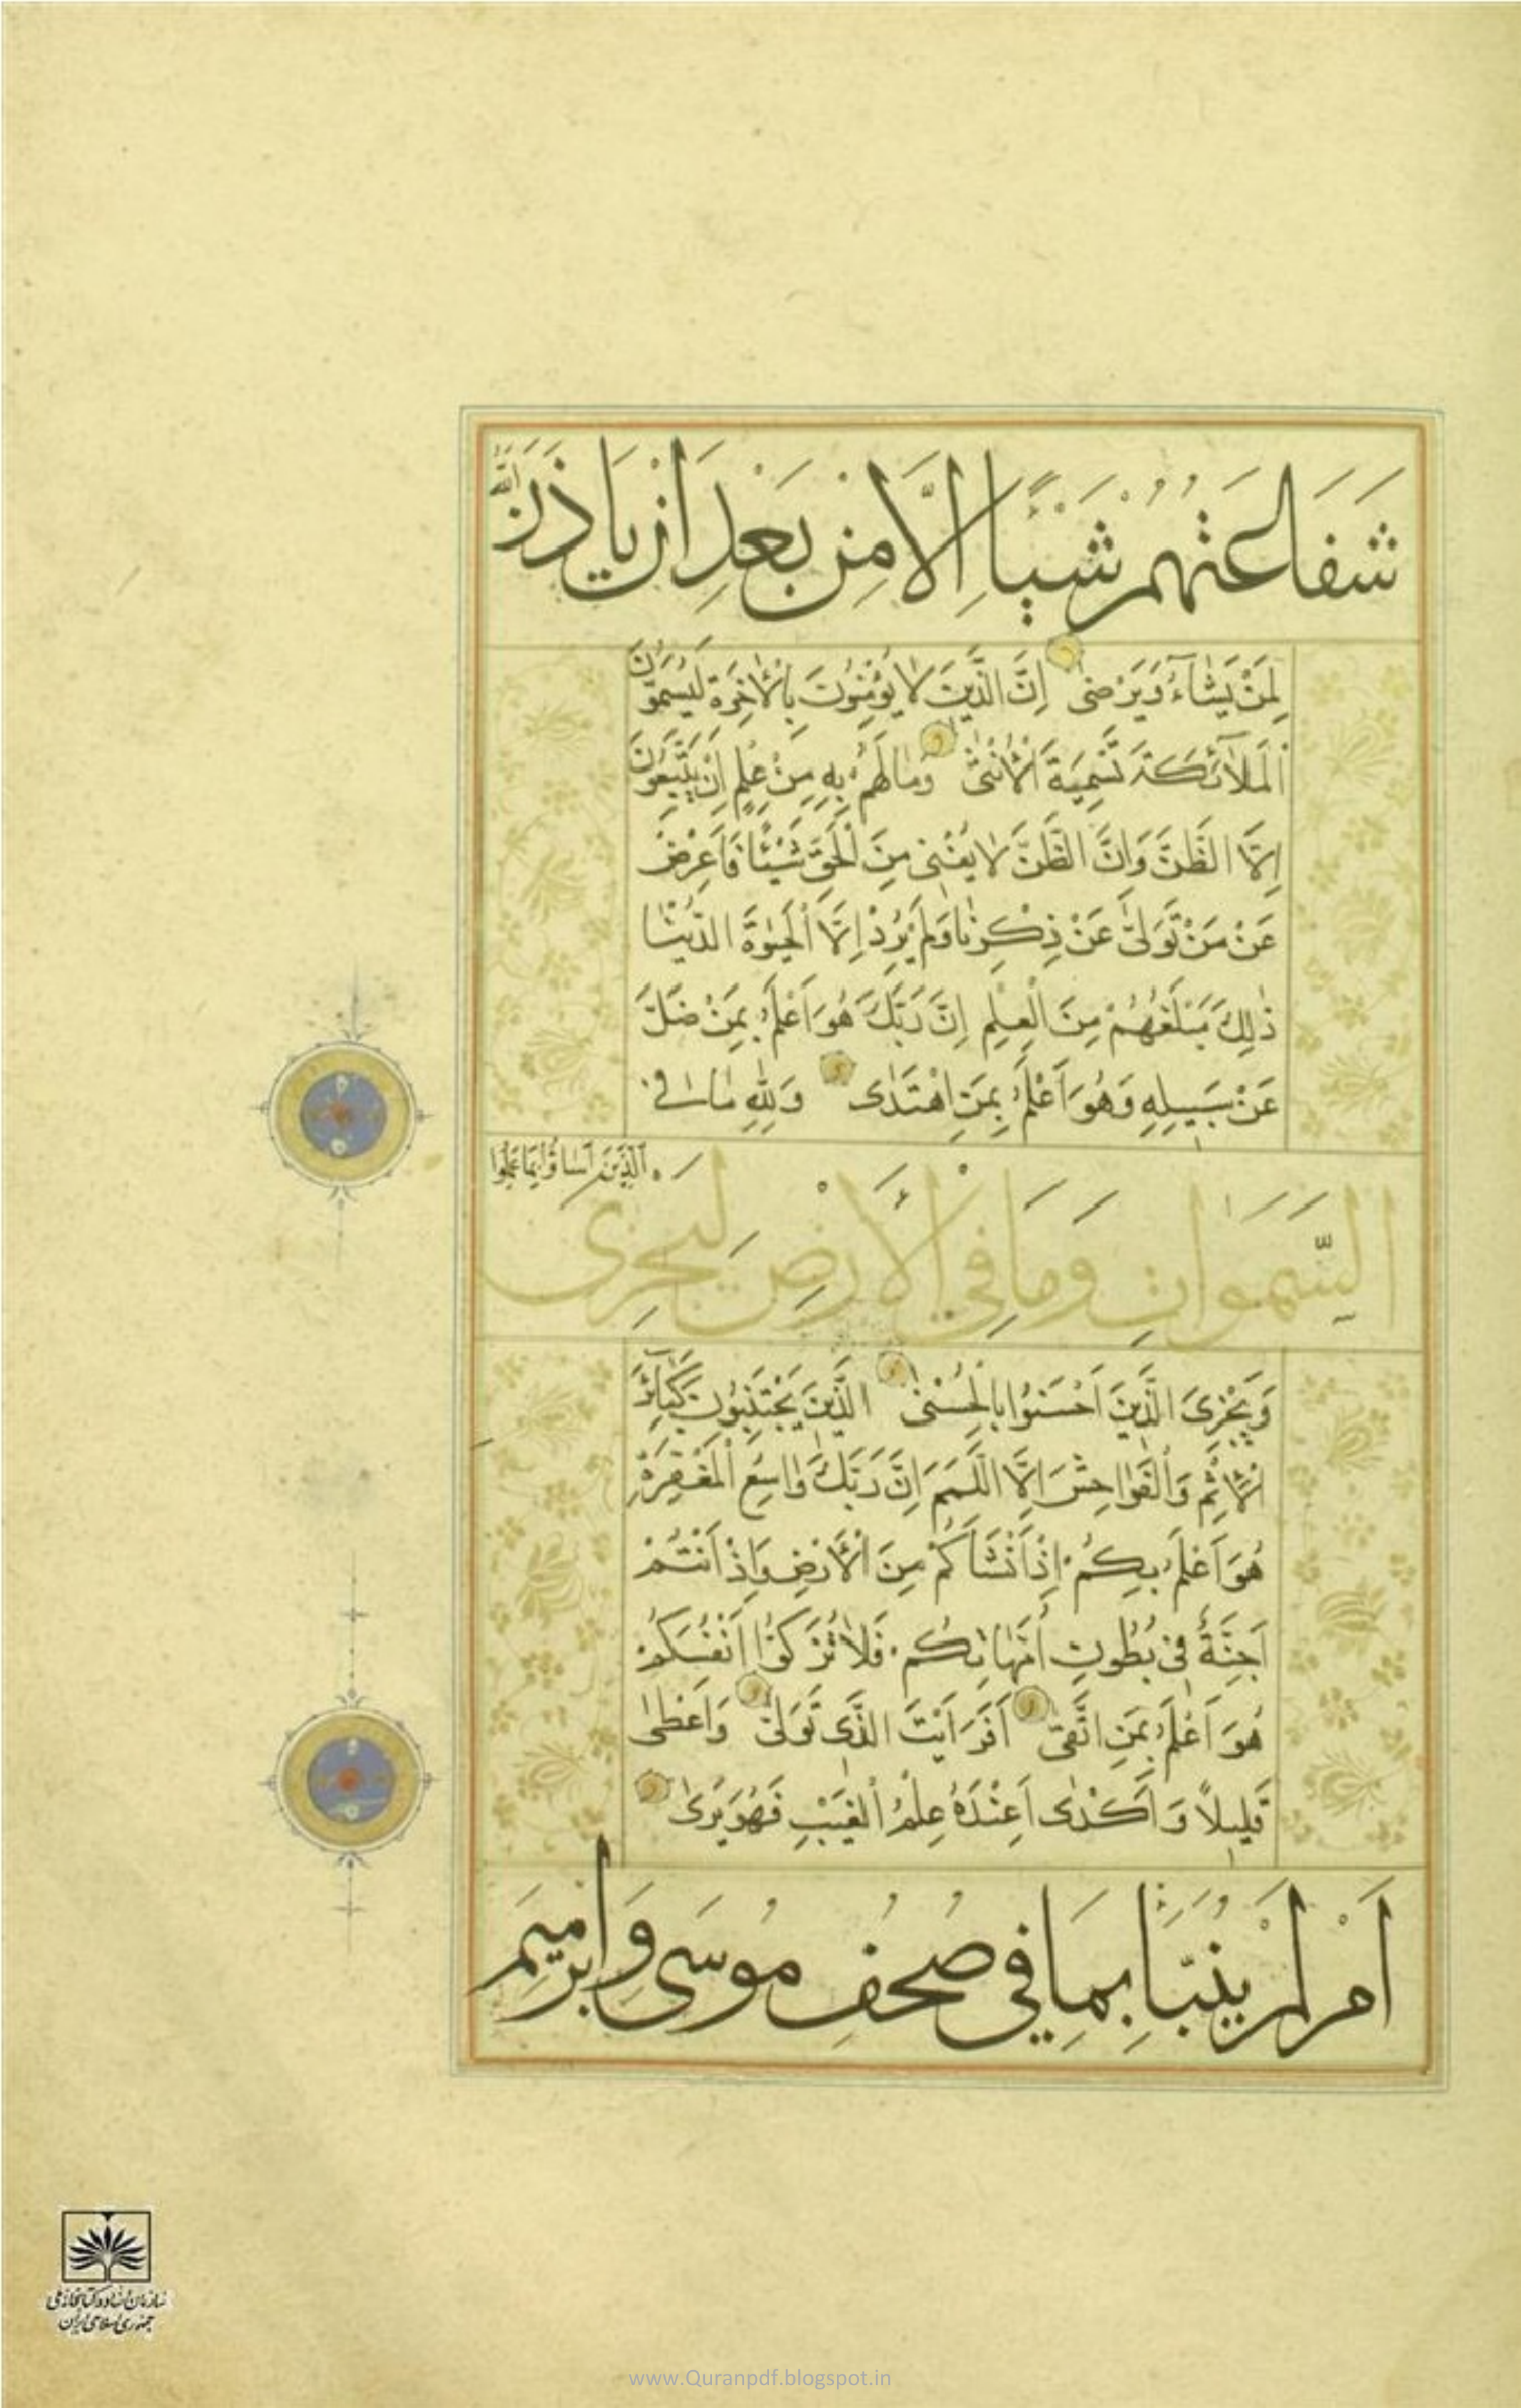 شَفَاعَتُهُمْ شَيْـًٔا اِلَّا مِنْ بَعْدِ اَنْ يَاْذَنَ اللّٰهُ
لِمَنْ يَشَآءُ وَيَرْضٰى اِنَّ الَّذِينَ لَا يُؤْمِنُونَ بِالْاٰخِرَةِ لَيُسَمُّونَ
الْمَلَآئِكَةَ تَسْمِيَةَ الْاُنْثٰى وَمَا لَهُمْ بِهِ مِنْ عِلْمٍ اِنْ يَتَّبِعُونَ
اِلَّا الظَّنَّ وَاِنَّ الظَّنَّ لَا يُغْنِى مِنَ الْحَقِّ شَيْئًا فَاَعْرِضْ
عَنْ مَنْ تَوَلّٰى عَنْ ذِكْرِنَا وَلَمْ يُرِدْ اِلَّا الْحَيٰوةَ الدُّنْيَا
ذٰلِكَ مَبْلَغُهُمْ مِنَ الْعِلْمِ اِنَّ رَبَّكَ هُوَ اَعْلَمُ بِمَنْ ضَلَّ
عَنْ سَبِيلِهِ وَهُوَ اَعْلَمُ بِمَنِ اهْتَدٰى وَلِلّٰهِ مَا فِى
السَّمَوَاتِ وَمَا فِي الْاَرْضِ لِيَجْزِىَ الَّذِينَ اَسَاؤُا بِمَا عَمِلُوا
وَيَجْزِىَ الَّذِينَ اَحْسَنُوا بِالْحُسْنٰى الَّذِينَ يَجْتَنِبُونَ كَبَآئِرَ
الْاِثْمِ وَالْفَوَاحِشَ اِلَّا اللَّمَمَ اِنَّ رَبَّكَ وَاسِعُ الْمَغْفِرَةِ
هُوَ اَعْلَمُ بِكُمْ اِذْ اَنْشَاَكُمْ مِنَ الْاَرْضِ وَاِذْ اَنْتُمْ
اَجِنَّةٌ فِى بُطُونِ اُمَّهَاتِكُمْ فَلَا تُزَكُّوا اَنْفُسَكُمْ
هُوَ اَعْلَمُ بِمَنِ اتَّقٰى اَفَرَاَيْتَ الَّذِى تَوَلّٰى وَاَعْطٰى
قَلِيلًا وَاَكْدٰى اَعِنْدَهُ عِلْمُ الْغَيْبِ فَهُوَ يَرٰى
اَمْ لَمْ يُنَبَّاْ بِمَا فِي صُحُفِ مُوسَى وَاِبْرٰهِيمَ
سازمان اسناد و کتابخانه ملی
جمهوری اسلامی ایران
www.Quranpdf.blogspot.in